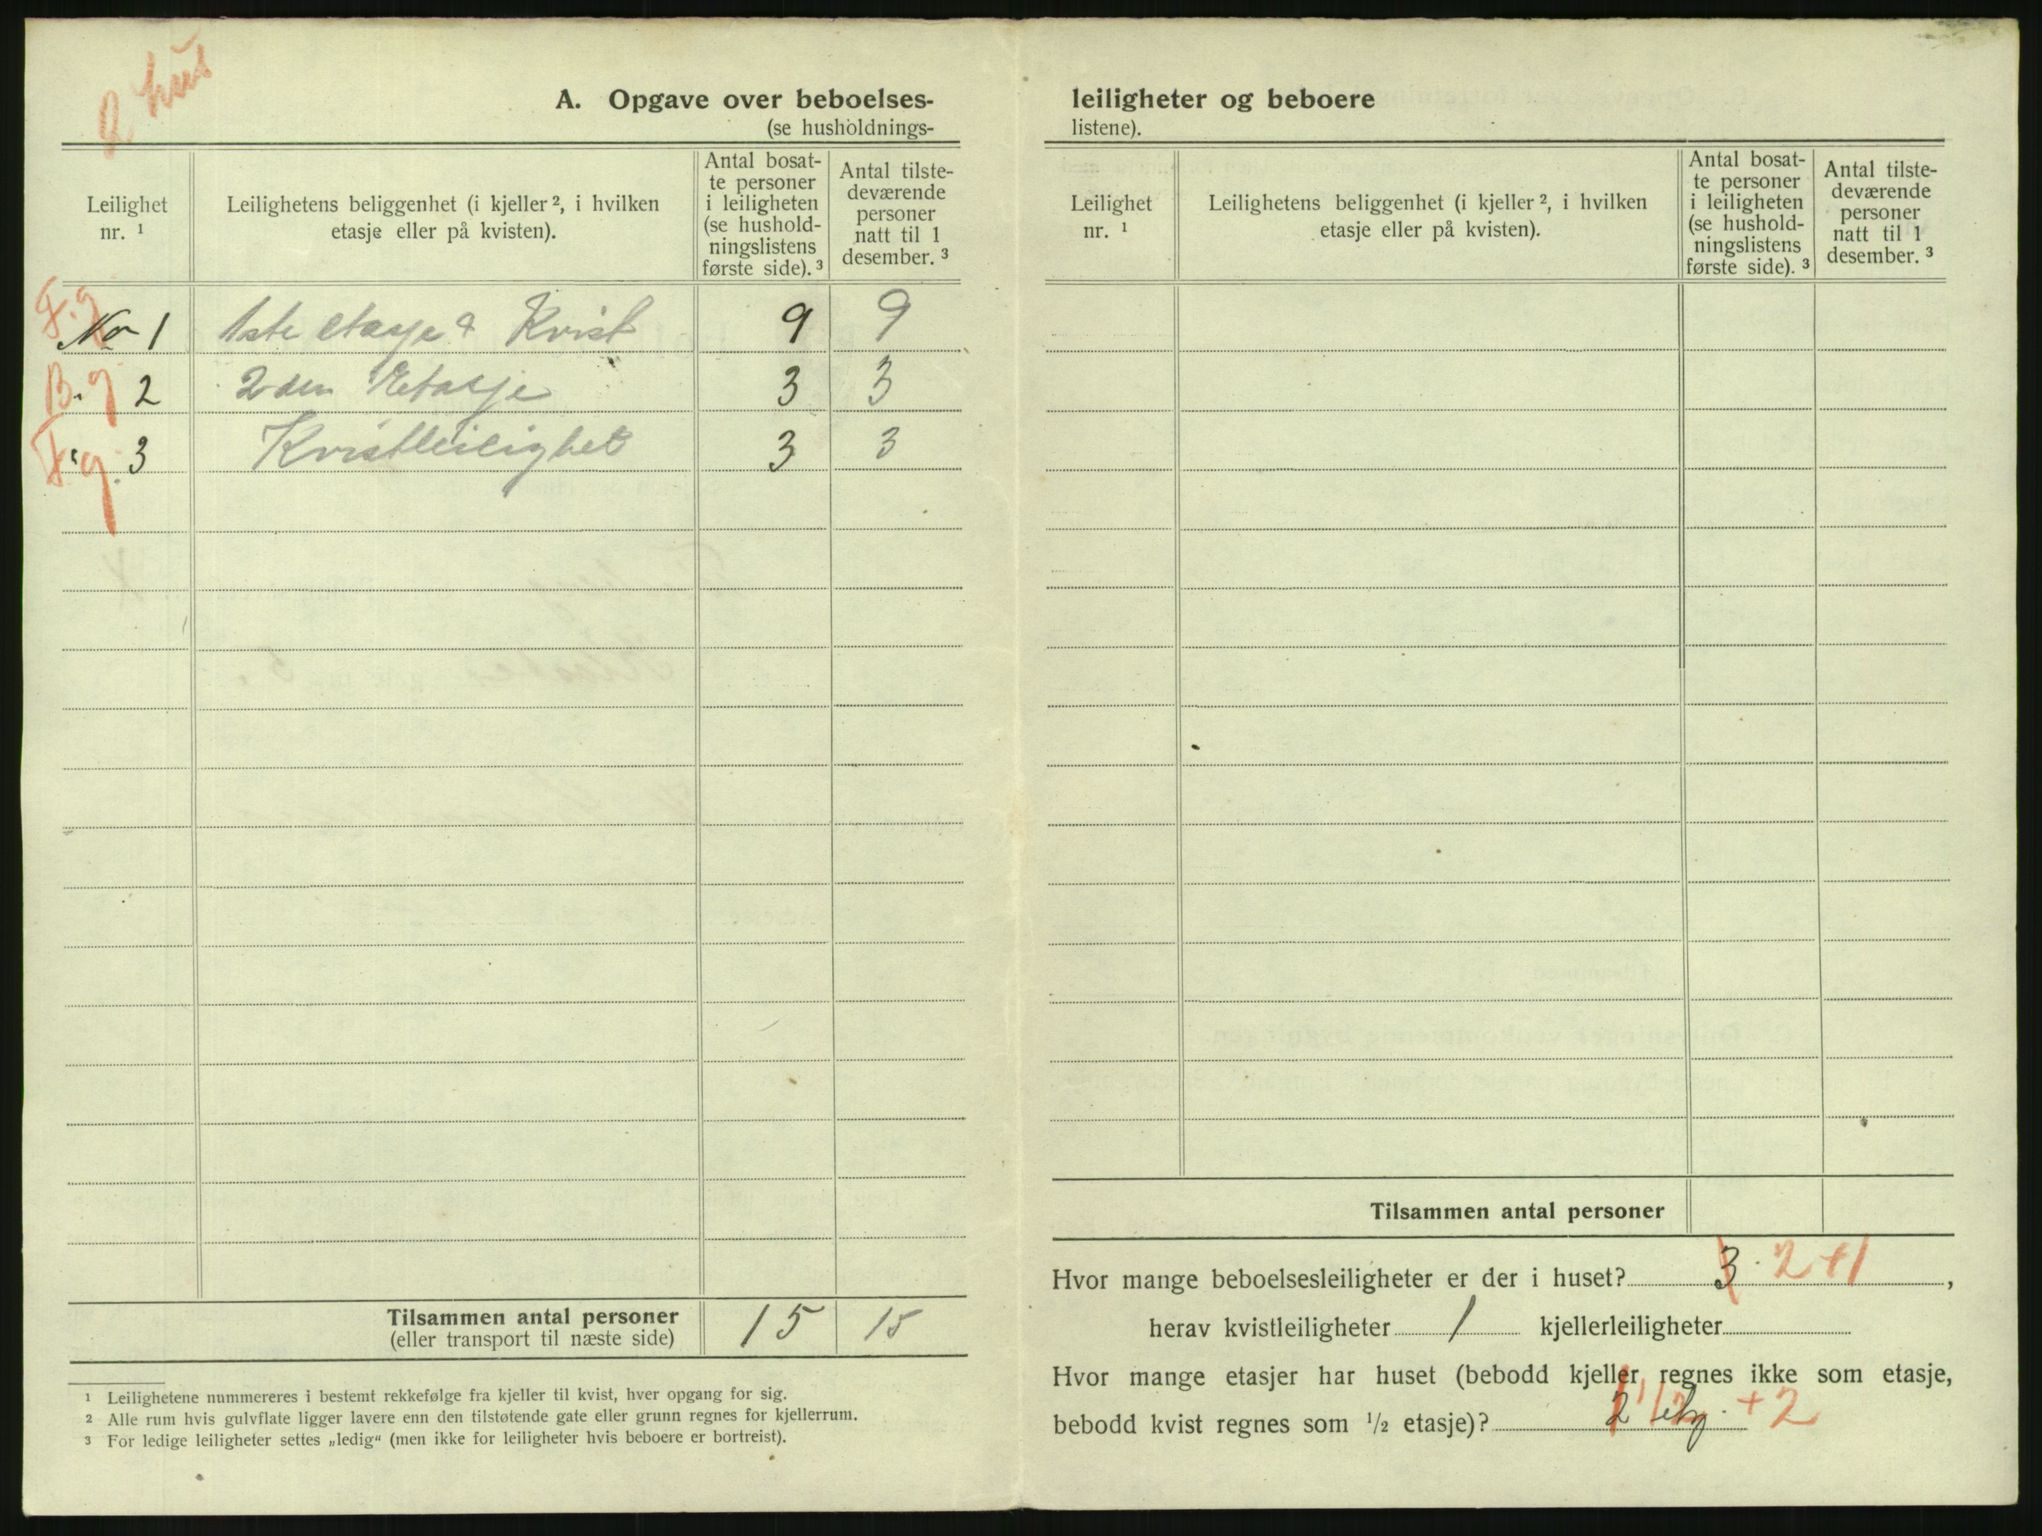 2 hus
A. Opgave over beboelses-
(se husholdnings-
Leilighet
nr. 1
Leilighetens beliggenhet (i kjeller 2, i hvilken
etasje eller på kvisten).
Antal bosat-
te personer
i leiligheten
(se hushold-
ningslistens
første side). 3
Antal tilste-
deværende
personer
natt til 1
desember. 3
F.g
No 1 1ste etasje & Kvist 9 9
B.g 2 2den Etasje 3 3
F.g. 3 Kvistleilighet 3 3
Tilsammen antal personer
(eller transport til næste side) 15 15
1 Leilighetene nummereres i bestemt rekkefølge fra kjeller til kvist, hver opgang for sig.
2 Alle rum hvis gulvflate ligger lavere enn den tilstøtende gate eller grunn regnes for kjellerrum.
3 For ledige leiligheter settes „ledig“ (men ikke for leiligheter hvis beboere er bortreist).
leiligheter og beboere
listene).
Leilighet
nr. 1
Leilighetens beliggenhet (i kjeller 2, i hvilken
etasje eller på kvisten).
Antal bosat-
te personer
i leiligheten
(se hushold-
ningslistens
første side). 3
Antal tilste-
deværende
personer
natt til 1
desember. 3
Tilsammen antal personer
Hvor mange beboelsesleiligheter er der i huset? 3 2+1,
herav kvistleiligheter 1 kjellerleiligheter
Hvor mange etasjer har huset (bebodd kjeller regnes ikke som etasje,
bebodd kvist regnes som 1/2 etasje)? 2 1 1/2 + 2